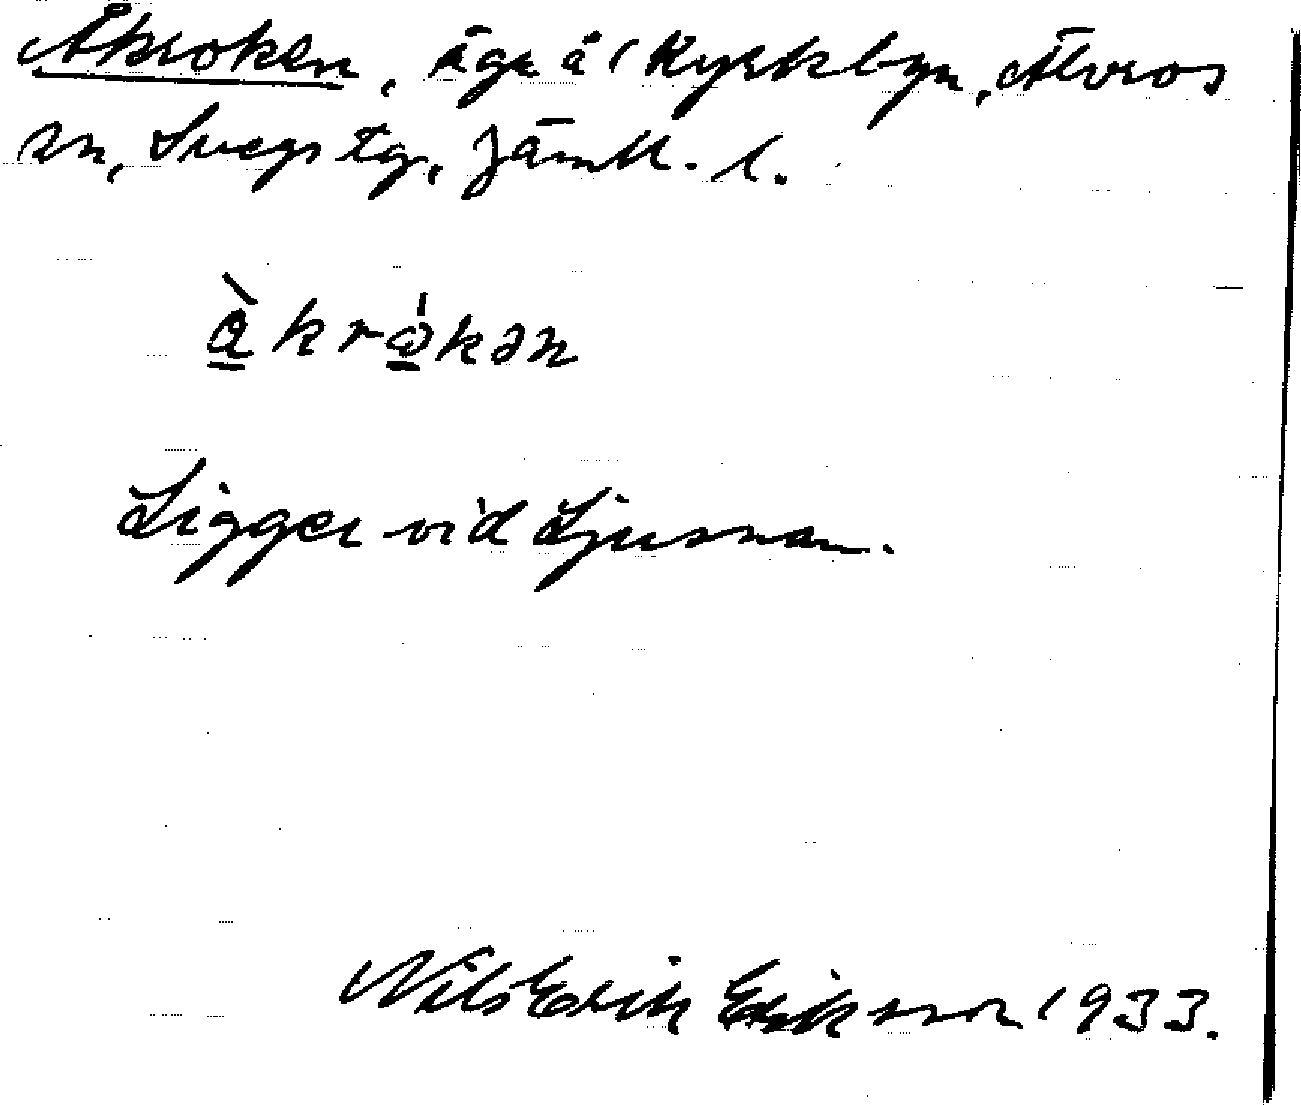 Åkroken, ägr å i Kyrkbyn, Älvros
sn, Svegs tg, Jämtl. l.
å̀krω̍kən
Ligger vid Ljusnan.
Nils Erik Eriksson 1933.